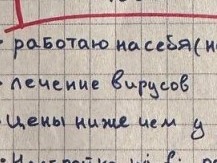 • работаю на себя (н
• лечение вирусов
• Цены ниже чем у